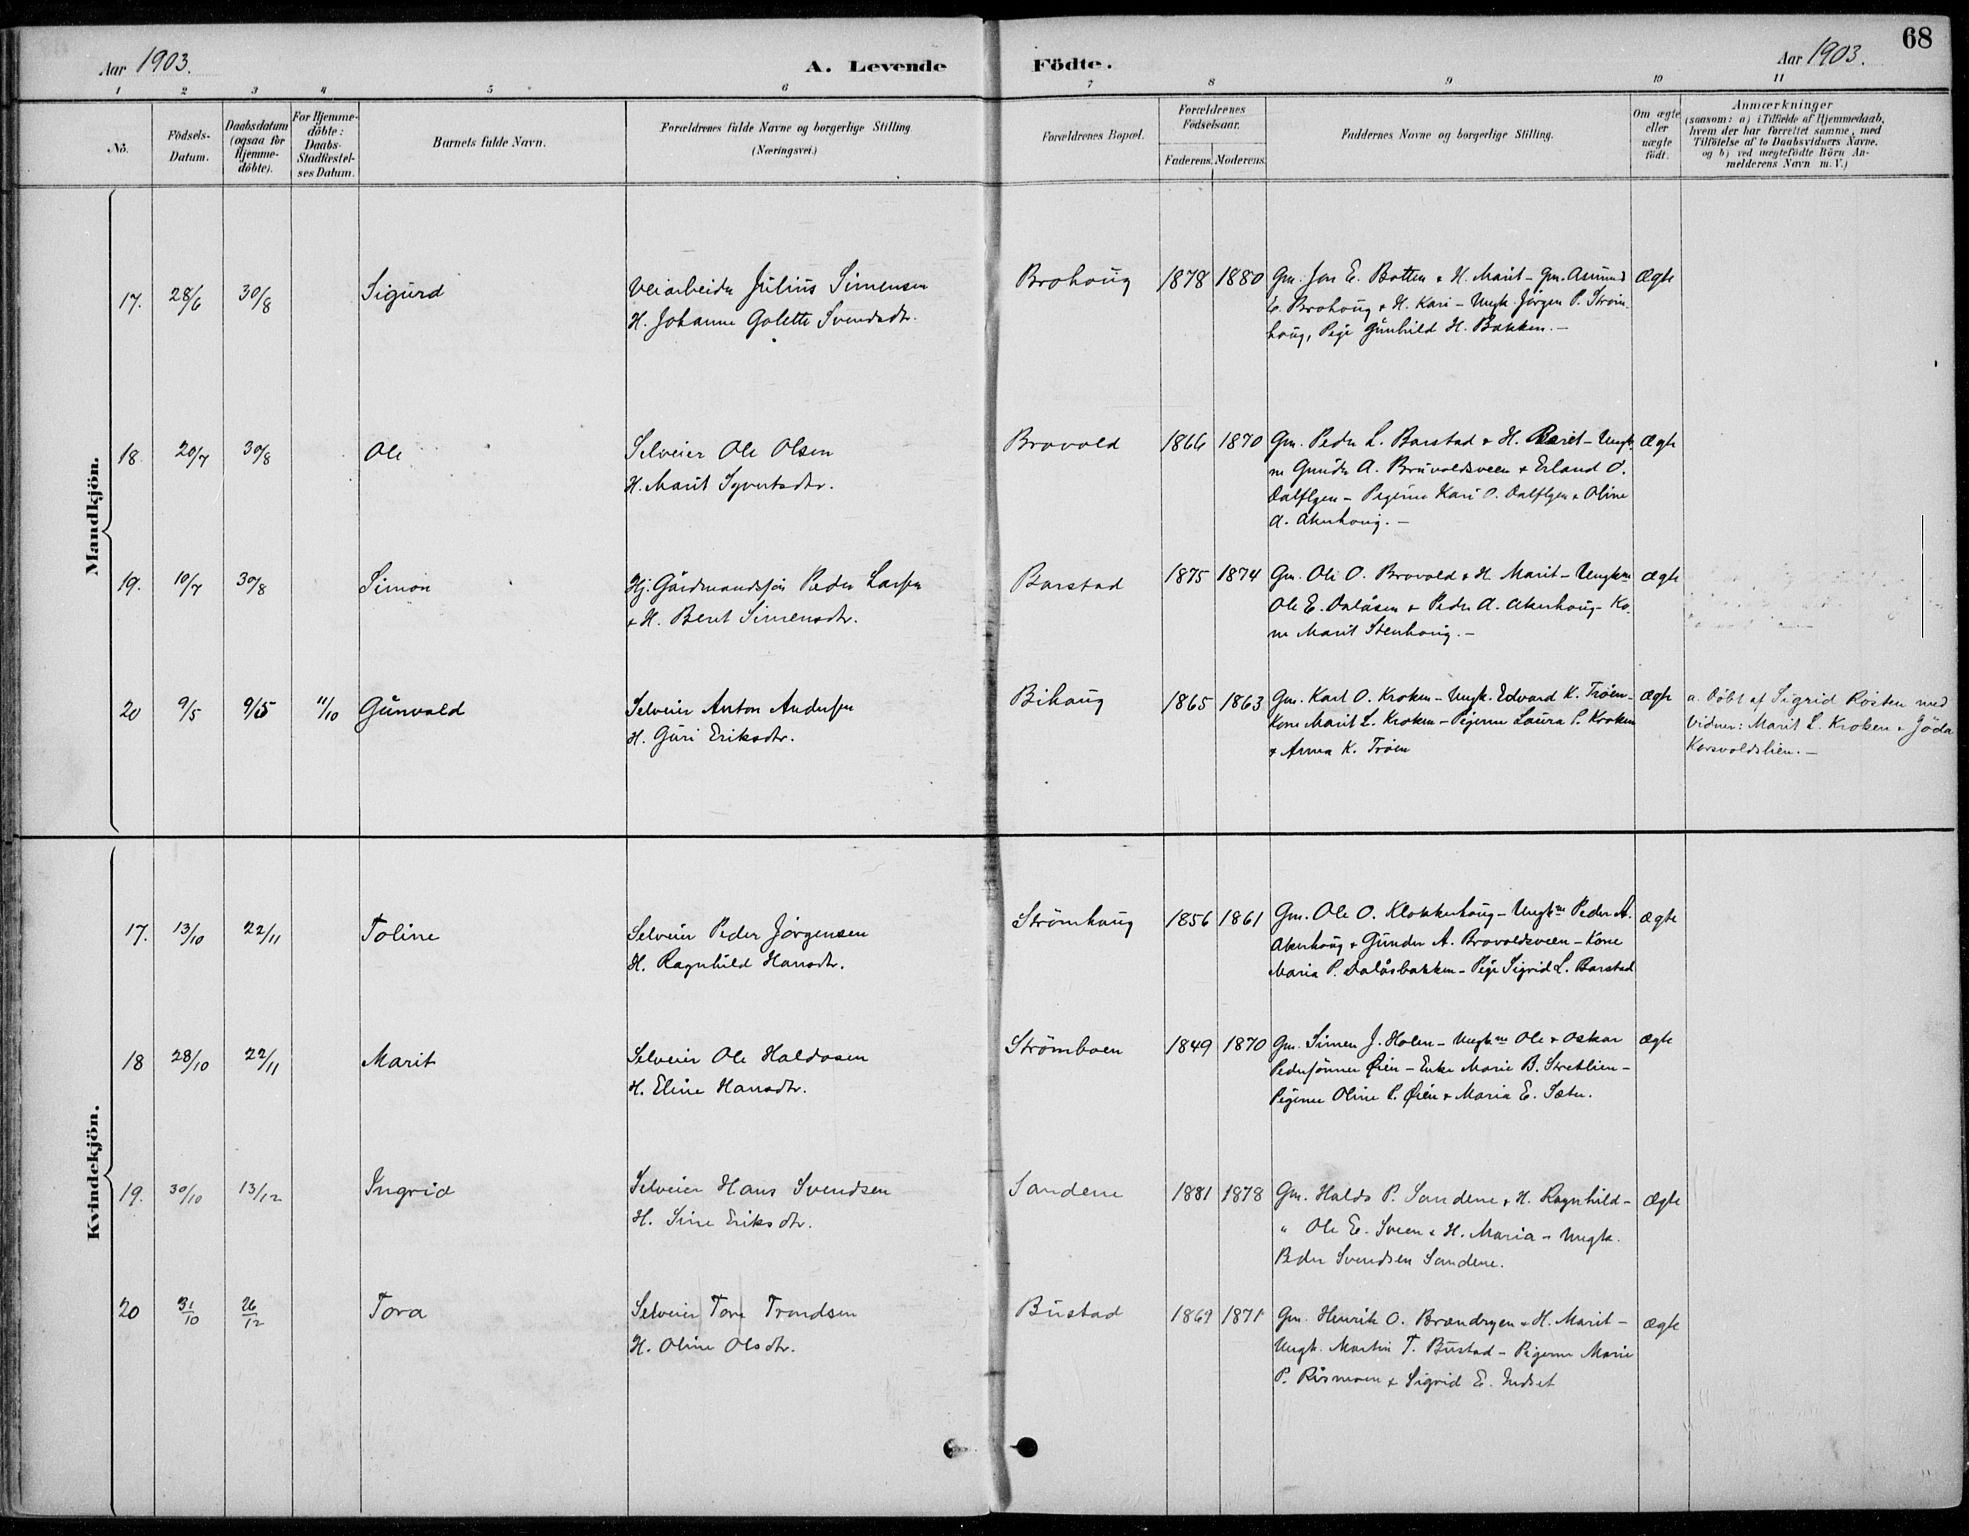 68
Aar 1903.
A. Levende Födte.
Aar 1903.
1 2 3 4 5 6 7 8 9 10 11
No.
Födsels-
Datum.
Daabsdatum
(ogsaa for
Hjemme-
döbte).
For Hjemme-
döbte:
Daabs-
Stadfæstel-
ses Datum.
Barnets fulde Navn.
Forældrenes fulde Navne og borgerlige Stilling
(Næringsvei.)
Forældrenes Bopæl.
Forældrenes
Födselsaar.
Faderens. Moderens.
Faddernes Navne og borgerlige Stilling.
Om ægte
eller
uægte
födt.
Anmærkninger
(saasom: a) i Tilfælde af Hjemmedaab,
hvem der har forrettet samme, med
Tilföielse af to Daabsvidners Navne,
og b) ved uægtefödte Börn An-
melderens Navn m. V.)
Mandkjön.
17. 28/6 30/8 Sigurd
Veiarbeider Julius Simensen
H. Johanne Golette Svendsdtr.
Brohoug 1878 1880
Gm. Jon E. Botten & H. Marit - Gm. Amund
E. Brohoug & H. Kari - Ungk. Jørgen P. Strøm-
houg, Pige Gunhild H. Bakken. -
Ægte
18. 20/7 30/8 Ole
Selveier Ole Olsen
H. Marit Syvertsdtr.
Brovold 1866 1870
Gm. Peder L. Barstad & H. Beret - Ungk.
ne Gunder A. Bruvoldsveen & Erland O.
Dalflyen - Pigerne Kari O. Dalflyen & Oline
A. Akerhoug. -
Ægte
19. 10/7 30/8 Simon
Hj. Gårdmandssøn Peder Larsen
& H. Beret Simensdtr.
Barstad 1875 1874
Gm. Ole O. Brovold & H. Marit - Ungkne
Ole E. Dalåsen & Peder A. Akerhoug - Ko-
ne Marit Stenhoug. -
ægte
20 9/5 9/5 11/10 Gunvald
Selveier Anton Andersen
H. Guri Eriksdtr.
Bihoug 1865 1863
Gm. Karl O. Kroken - Ungk. Edvard K. Trøen -
Kone Marit L. Kroken - Pigerne Laura P. Kroken
& Anna K. Trøen
ægte
a. Døbt af Sigrid Rosten med
Vidner: Marit L. Kroken & Jöda
Korsvoldslien. -
Kvindekjön.
17. 13/10 22/11 Toline
Selveier Peder Jørgensen
H. Ragnhild Hansdtr.
Strømhoug 1856 1861
Gm. Ole O. Klokkerhoug - Ungkne Peder A.
Akerhoug & Gunder A. Brovoldsveen - Kone
Maria P. Dalåsbakken - Pige Sigrid L. Barstad
ægte
18 28/10 22/11 Marit
Selveier Ole Haldosen
H. Eline Hansdtr.
Strømboen 1849 1870
Gm. Simen J. Holen - Ungkne Ole & Oskar
Pedersønner Øien - Enke Marie B. Stretlien -
Pigerne Oline P. Øien & Maria E. Sæter.
ægte
19. 30/10 13/12 Ingrid
Selveier Hans Svendsen
H. Sine Eriksdtr.
Sandene 1881 1878
Gm. Haldo P. Sandene & H. Ragnhild -
" Ole E. Sveen & H. Maria - Ungk.
Peder Svendsen Sandene.
Ægte
20 31/10 26/12 Tora
Selveier Tore Trondsen
H. Oline Olsdtr.
Bustad 1869 1871
Gm. Henrik O. Brændryen & H. Marit -
Ungk. Martin T. Bustad - Pigerne Marie
P. Rismoen & Sigrid E. Indset
ægte